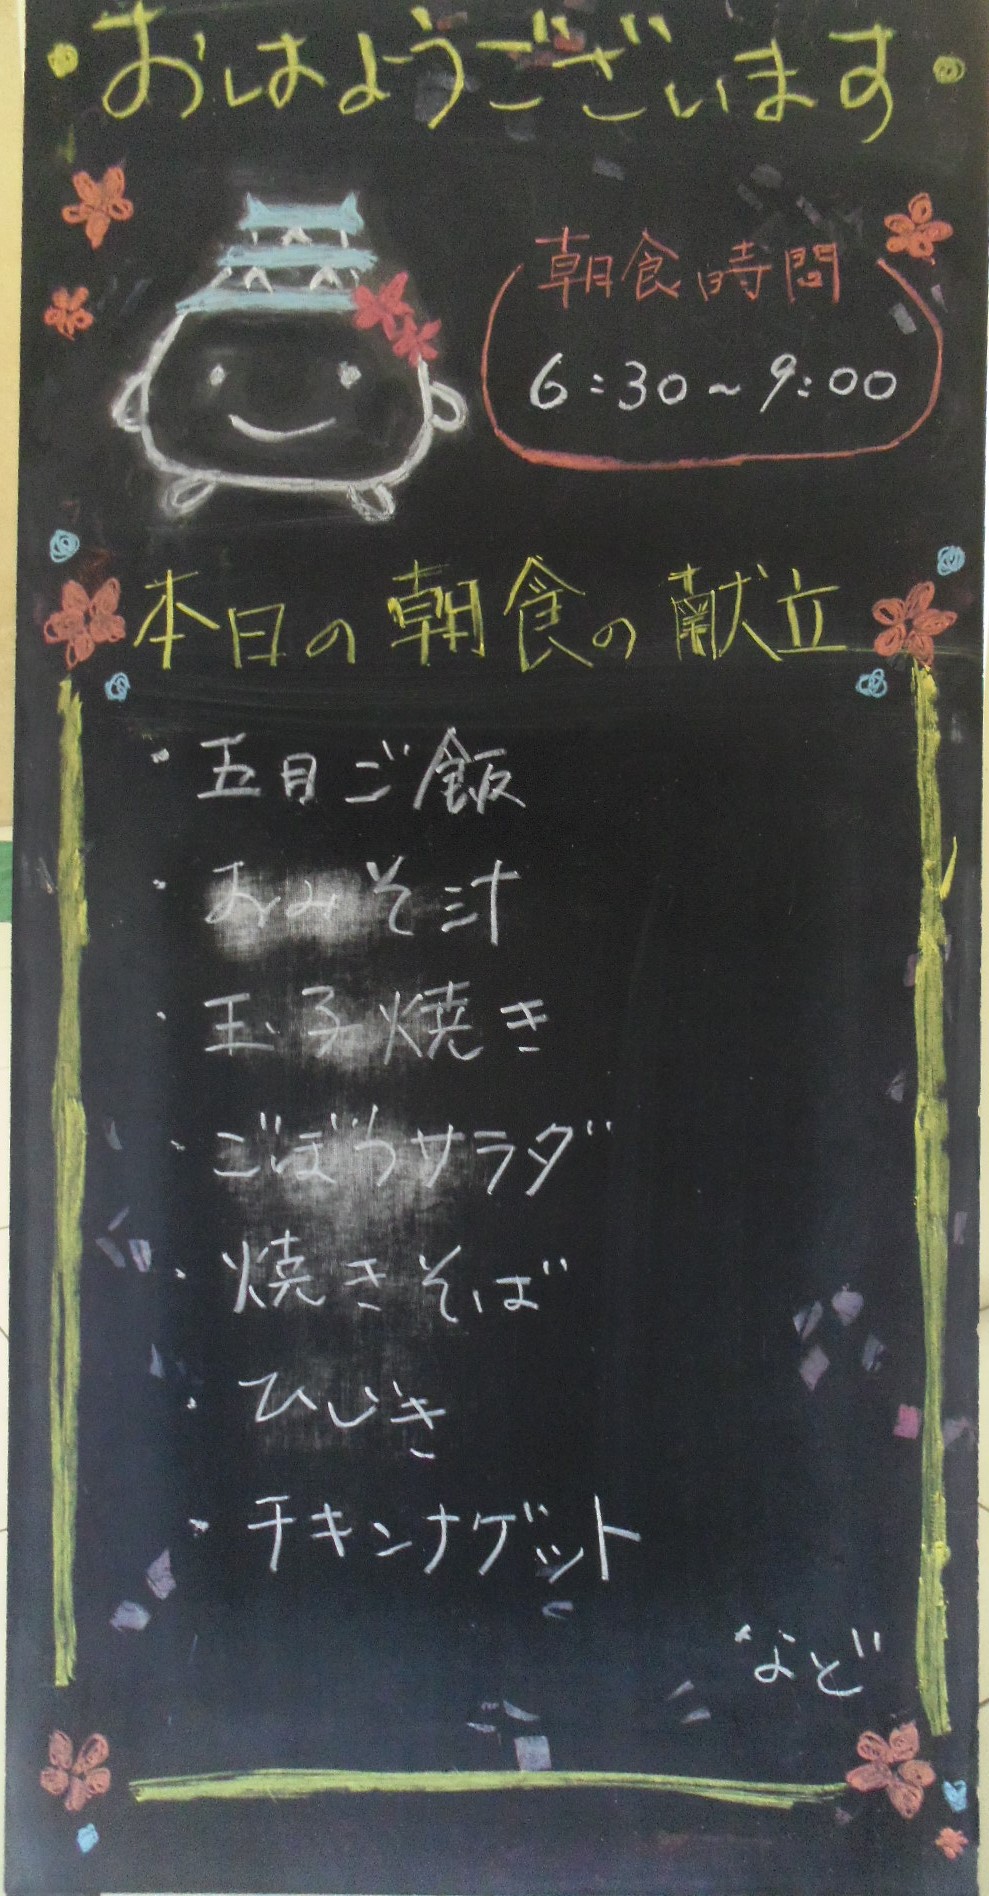 おはようございます
朝食時間
6:30~9:00
本日の朝食の献立
・五目ご飯
・おみそ汁
・玉子焼き
・ごぼうサラダ
・焼きそば
・ひじき
・チキンナゲット
など